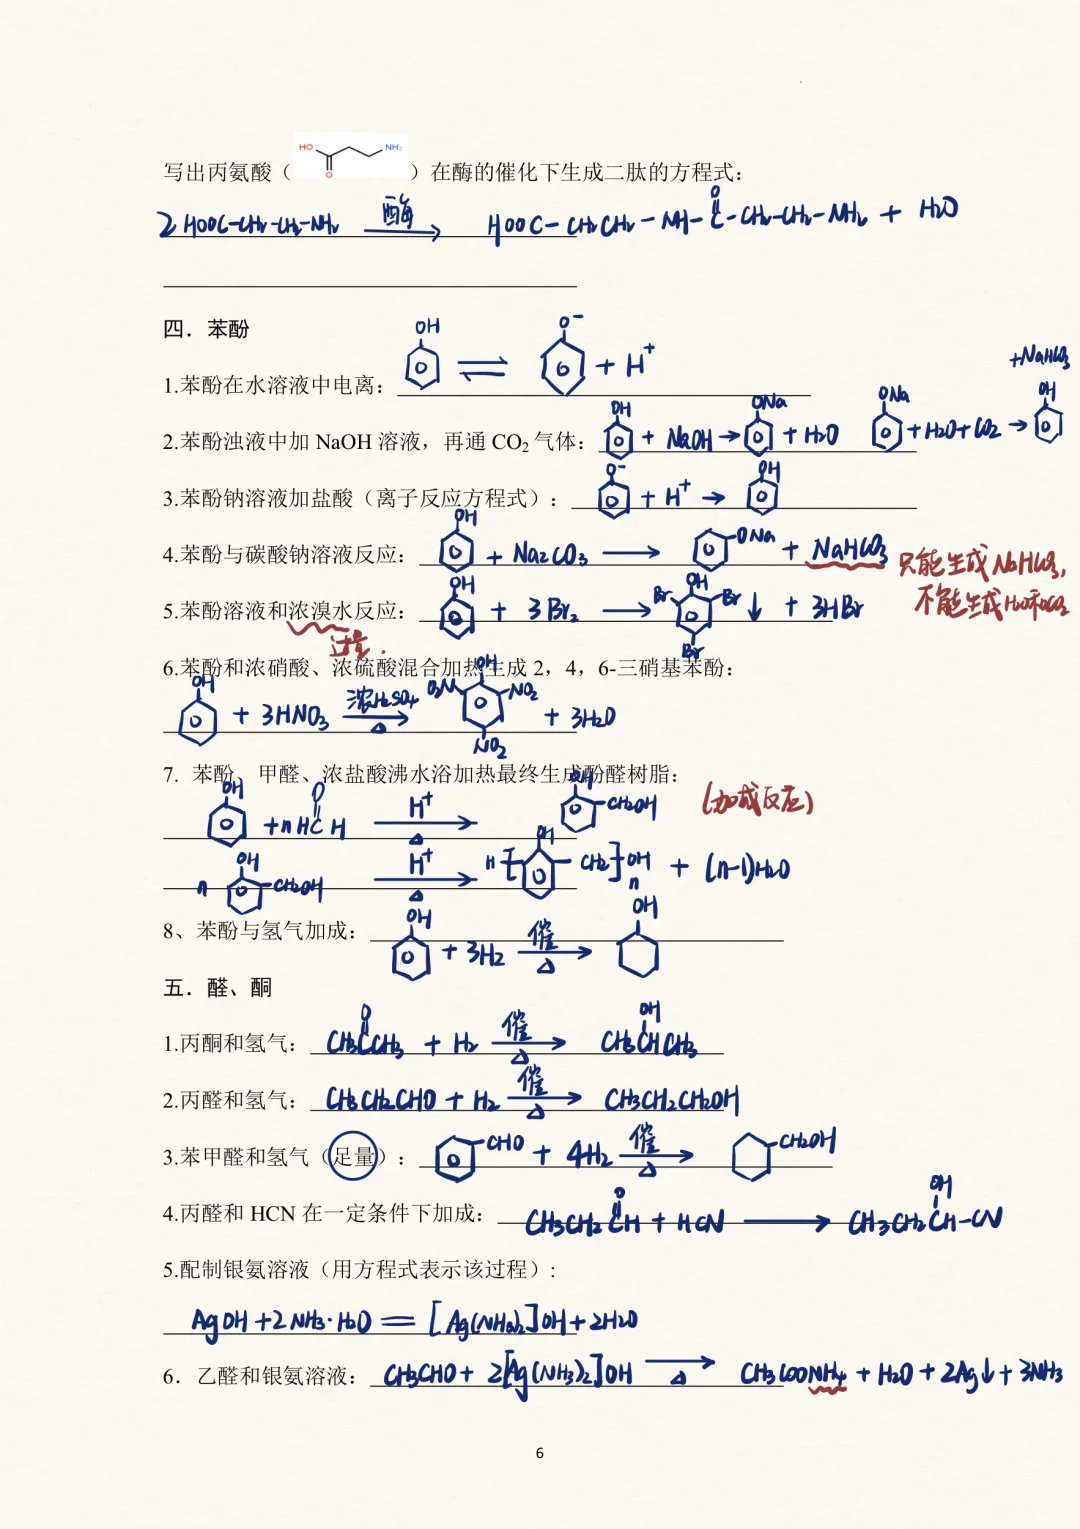 HO NH₂
O
写出丙氨酸（ ）在酶的催化下生成二肽的方程式：
O
2 HOOC-CH₂-CH₂-NH₂ 酶 → HOOC-CH₂CH₂-NH-C-CH₂-CH₂-NH₂ + H₂O
四．苯酚
OH O⁻
1.苯酚在水溶液中电离： ⇌ + H⁺
+NaHCO₃
OH ONa ONa OH
2.苯酚浊液中加 NaOH 溶液，再通 CO₂ 气体： + NaOH → + H₂O +H₂O+CO₂ →
O⁻ OH
3.苯酚钠溶液加盐酸（离子反应方程式）： + H⁺ →
OH
4.苯酚与碳酸钠溶液反应： + Na₂CO₃ → ONa + NaHCO₃ 只能生成NaHCO₃,
不能生成H₂O和CO₂
OH OH
5.苯酚溶液和浓溴水反应： + 3Br₂ → Br Br ↓ + 3HBr
Br
过量.
6.苯酚和浓硝酸、浓硫酸混合加热生成 2，4，6-三硝基苯酚：
OH OH
+ 3HNO₃ 浓H₂SO₄ → △ O₂N NO₂ + 3H₂O
NO₂
7. 苯酚、甲醛、浓盐酸沸水浴加热最终生成酚醛树脂：
OH O OH
+nHCH H⁺ → △ CH₂OH (加成反应)
OH OH
n CH₂OH H⁺ → △ H[ CH₂]OH + (n-1)H₂O
n
OH OH
8、苯酚与氢气加成： + 3H₂ 催 → △
五．醛、酮
O OH
1.丙酮和氢气： CH₃CCH₃ + H₂ 催 → △ CH₃CHCH₃
2.丙醛和氢气： CH₃CH₂CHO + H₂ 催 → △ CH₃CH₂CH₂OH
3.苯甲醛和氢气（足量）： CHO + 4H₂ 催 → △ CH₂OH
O OH
4.丙醛和 HCN 在一定条件下加成： CH₃CH₂CH + HCN → CH₃CH₂CH-CN
5.配制银氨溶液（用方程式表示该过程）:
AgOH + 2NH₃·H₂O = [Ag(NH₃)₂]OH + 2H₂O
6．乙醛和银氨溶液： CH₃CHO + 2[Ag(NH₃)₂]OH → △ CH₃COONH₄ + H₂O + 2Ag↓ + 3NH₃
6